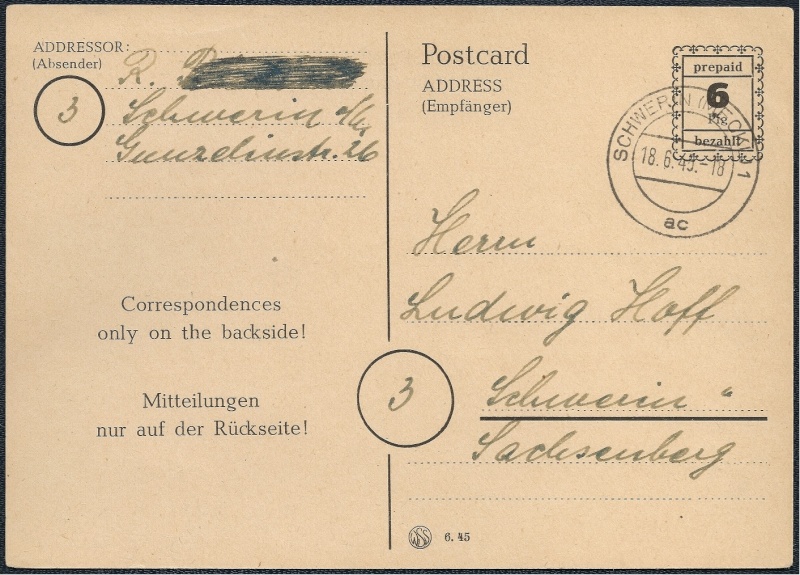 ADDRESSOR:
(Absender)
R.
3
Schwerin
Gunzelinstr. 26
Correspondences
only on the backside!
Mitteilungen
nur auf der Rückseite!
Postcard
ADDRESS
(Empfänger)
prepaid
6
Pfg
bezahlt
SCHWERIN (MECKL) 1
18.6.45.-18
ac
Herrn
Ludwig Hoff
3
Schwerin "
Sachsenberg
WSS 6. 45